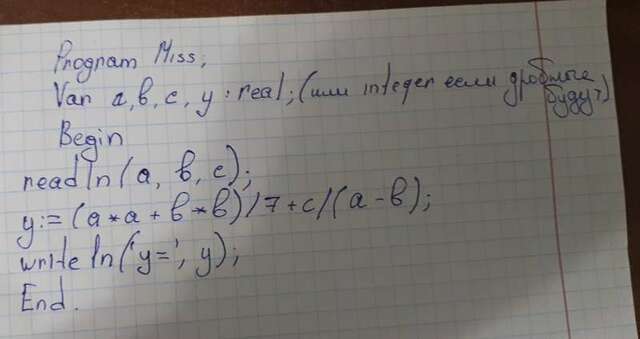 Program Miss;
Var a, b, c, y : real; (или integer если дробные будут)
Begin
readln(a, b, c);
y:= (a*a + b*b)/7+c/(a-b);
writeln('y=', y);
End.